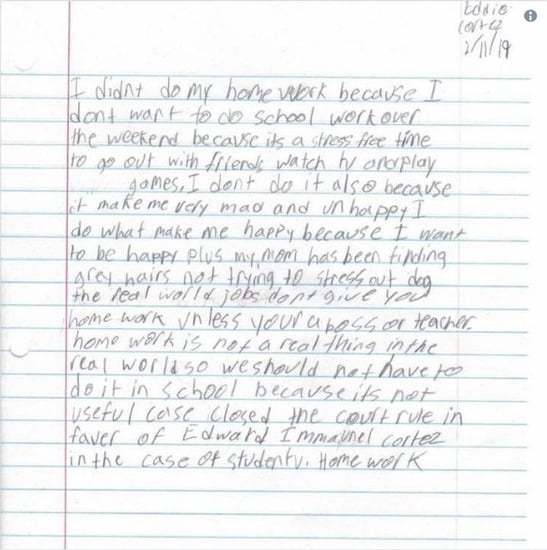 Eddie
Cortez
2/11/19
I didnt do my home work because I
dont want to do school work over
the weekend because its a stress free time
to go out with friends watch tv and play
games. I dont do it also because
it make me very mad and unhappy I
do what make me happy because I want
to be happy plus my mom has been finding
grey hairs not trying to stress out dog
the real world jobs dont give you
home work unless your a boss or teacher.
home work is not a real thing in the
real world so we should not have to
do it in school because its not
useful case closed the court rule in
faver of Edward Immanuel cortez
in the case of student v. Home work